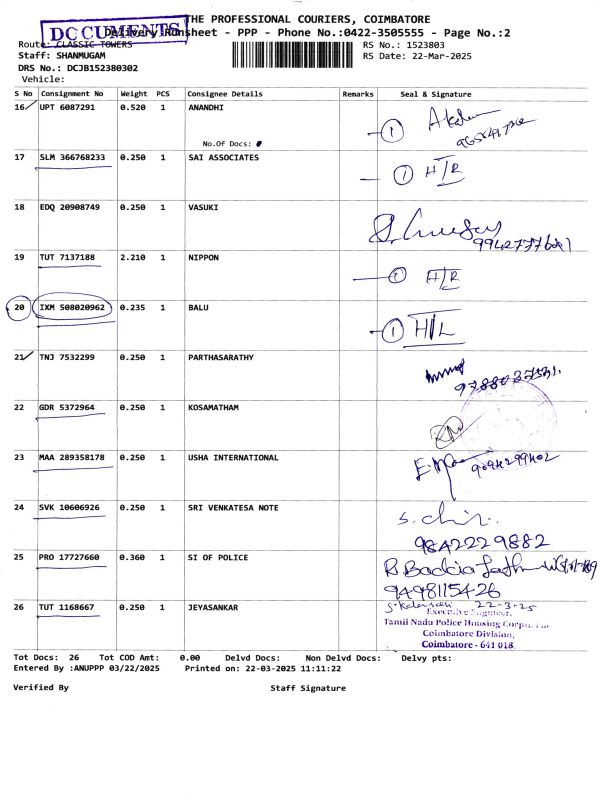 THE PROFESSIONAL COURIERS, COIMBATORE
DOCUMENTS
Delivery Runsheet - PPP - Phone No.:0422-3505555 - Page No.:2
Route: CLASSIC TOWERS
RS No.: 1523803
Staff: SHANMUGAM
RS Date: 22-Mar-2025
DRS No.: DCJB152380302
Vehicle:
S No Consignment No Weight PCS Consignee Details Remarks Seal & Signature
16 UPT 6087291 0.520 1 ANANDHI
No.Of Docs:
1
17 SLM 366768233 0.250 1 SAI ASSOCIATES
1 H/R
18 EDQ 20908749 0.250 1 VASUKI
19 TUT 7137188 2.210 1 NIPPON
1 H/R
20 IXM 508020962 0.235 1 BALU
1 H/L
21 TNJ 7532299 0.250 1 PARTHASARATHY
22 GDR 5372964 0.250 1 KOSAMATHAM
23 MAA 289358178 0.250 1 USHA INTERNATIONAL
24 SVK 10606926 0.250 1 SRI VENKATESA NOTE
9842229882
25 PRO 17727660 0.360 1 SI OF POLICE
9498115426
26 TUT 1168667 0.250 1 JEYASANKAR
22-3-25
Executive Engineer,
Tamil Nadu Police Housing
Coimbatore Division,
Coimbatore - 641 018.
Tot Docs: 26 Tot COD Amt: 0.00 Delvd Docs: Non Delvd Docs: Delvy pts:
Entered By :ANUPPP 03/22/2025 Printed on: 22-03-2025 11:11:22
Verified By Staff Signature